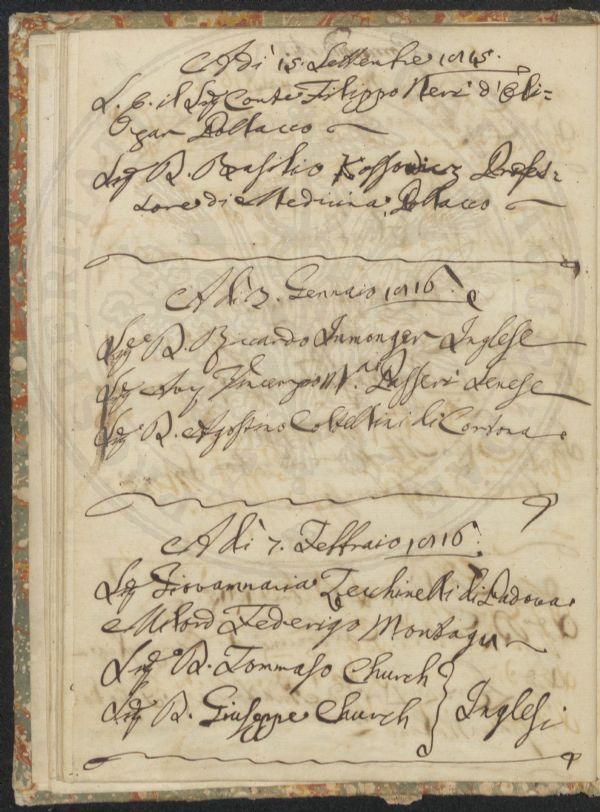 Adì 15. Settembre 1815.
S. E. il Sig Conte Filippo Neri d'Oli=
Pollacco
Sig D. Basilio Kossowicz Profes=
sore di Medicina Pollacco
Adì 3. Gennaio 1816.
Sige D. Riccardo Inmonger Inglese
Sig Avv Vincenzo Ma. Passeri Senese
Sig D. Agostino Coltellini di Cortona.
Adì 7. Febbraio 1816.
Sig Giovanmaria Zecchinelli di Padova
Milord Federigo Montagu
Sige D. Tommaso Church
Sig D. Giuseppe Church } Inglesi